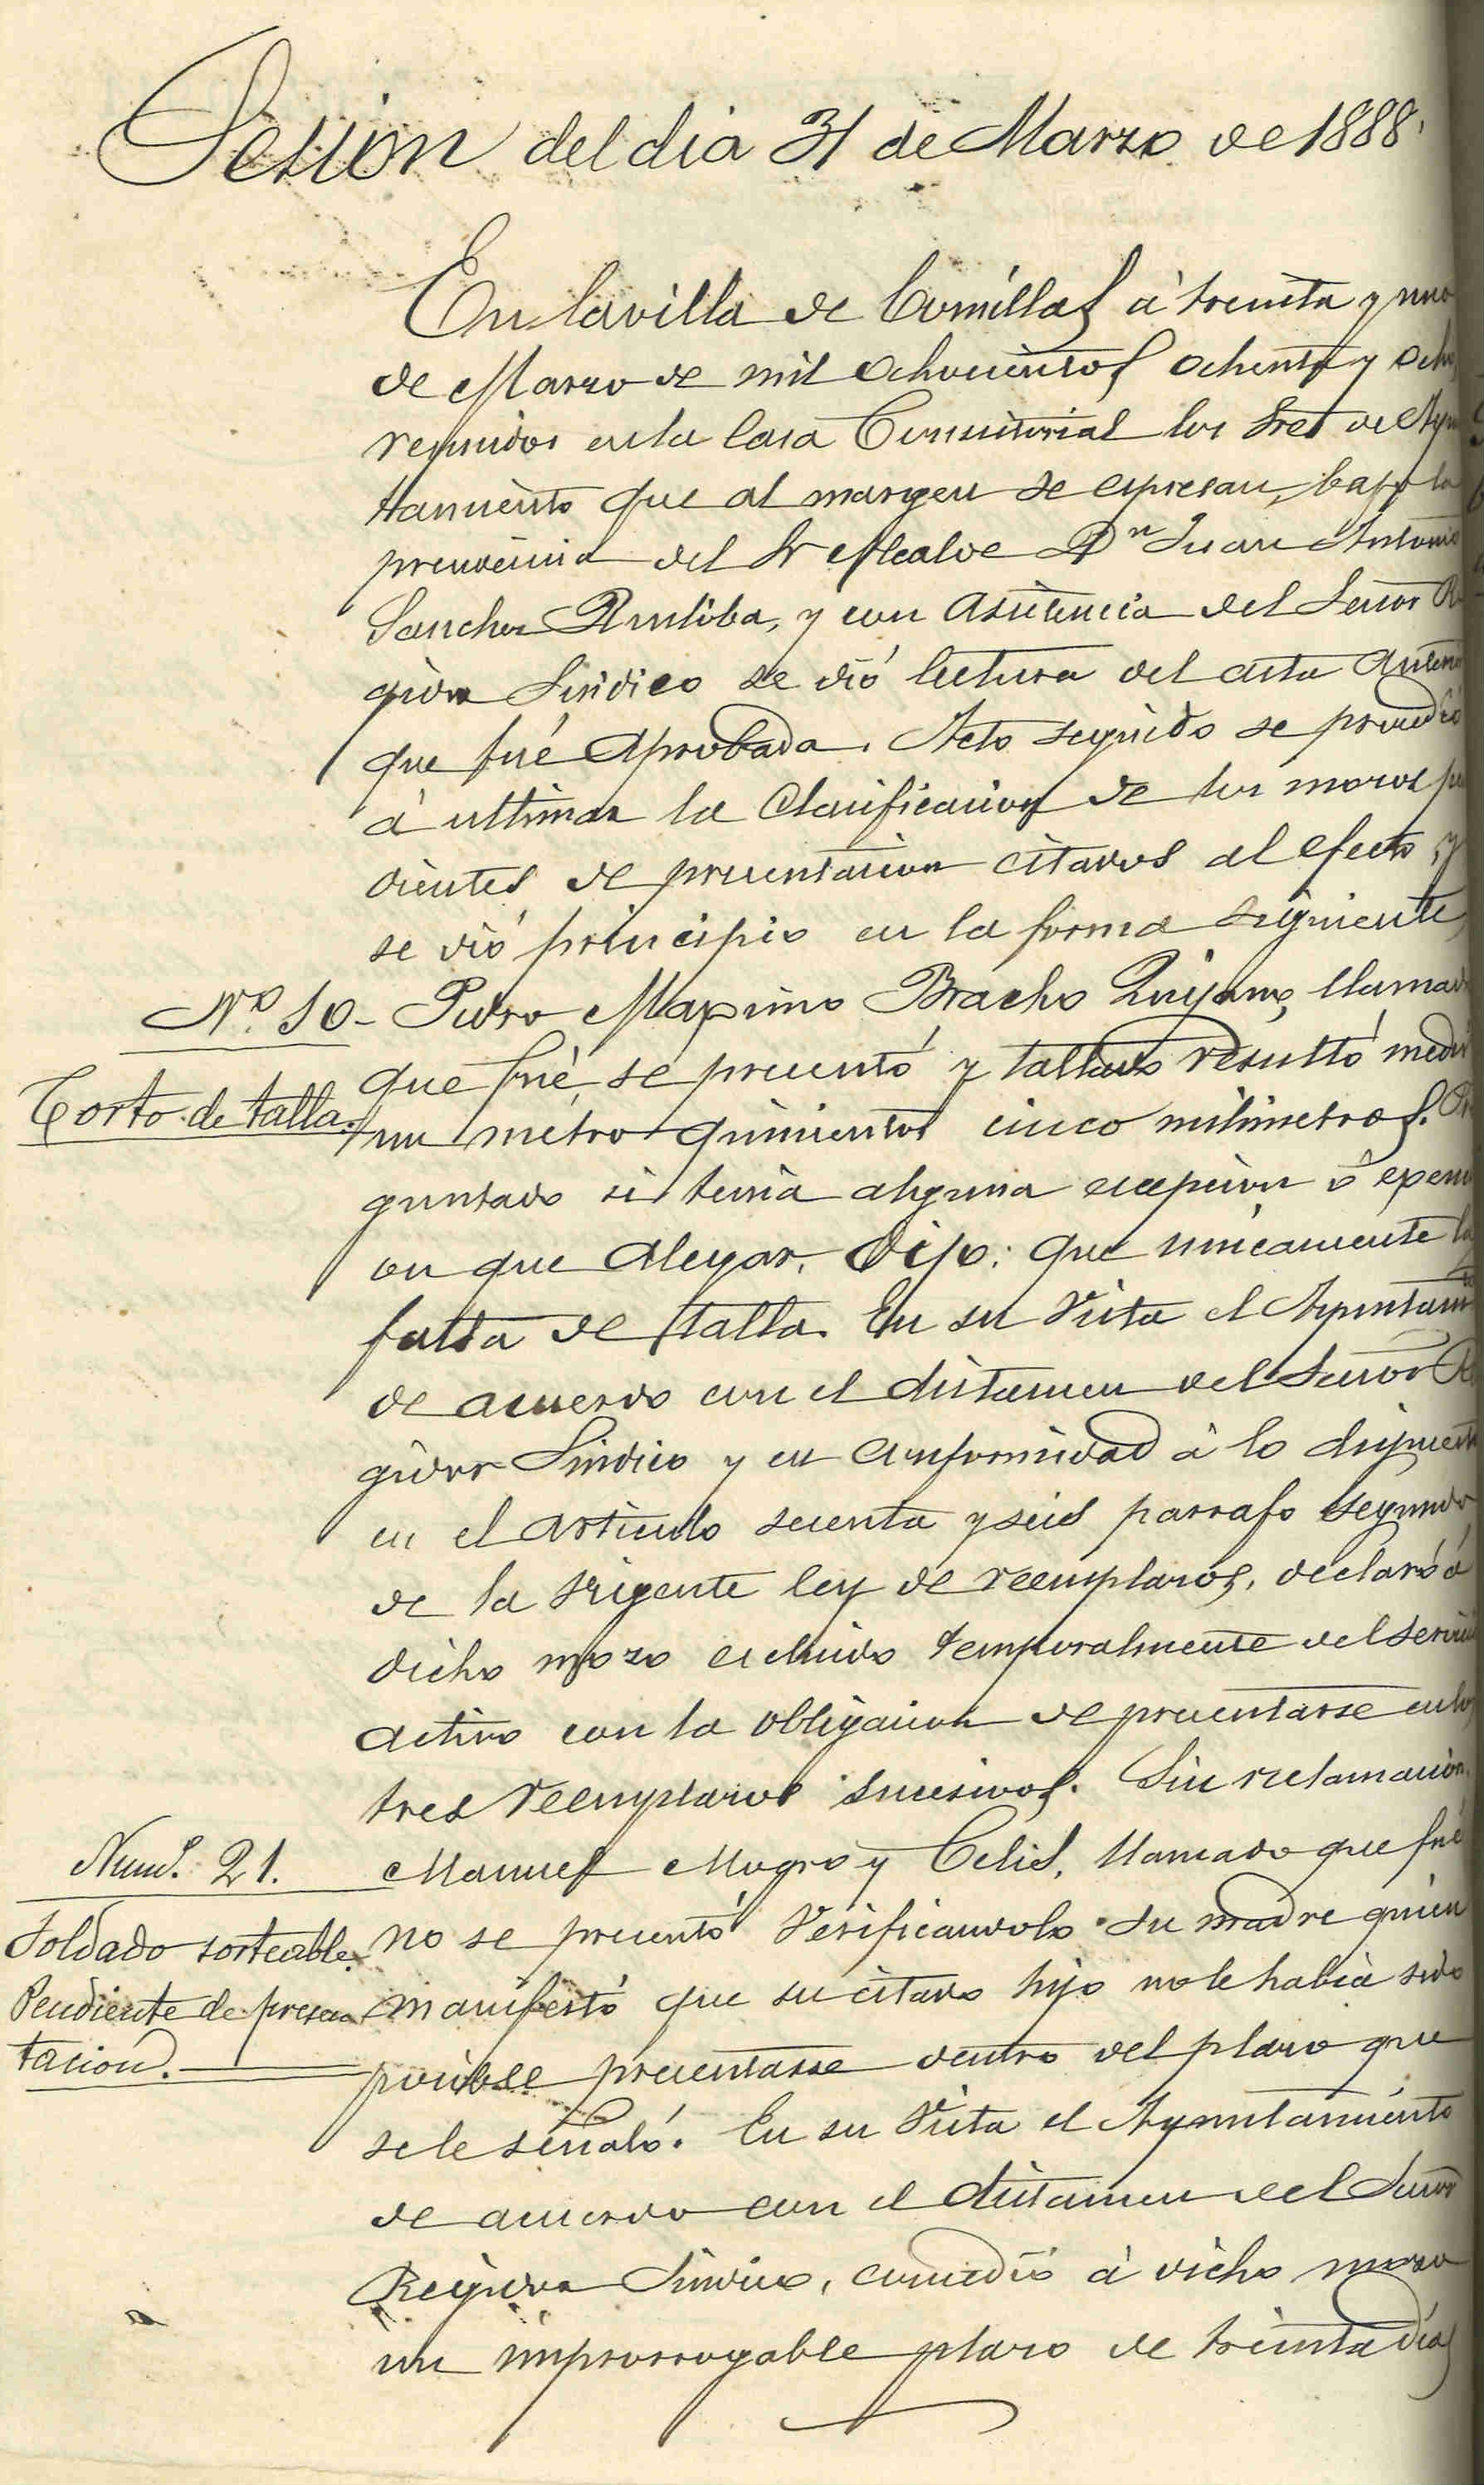 Sesion del dia 31 de Marzo de 1888.
En la villa de Comillas à treinta y uno
de Marzo de mil ochocientos ochenta y ocho,
reunidos en la Casa Consistorial los Sres de Ayun
tamiento que al margen se espresan, bajo la
presidencia del Sr Alcalde Dn Juan Antonio
Sanchez, y con asistencia del Señor Re
gidor Sindico se dió lectura del acta anterior
que fué aprobada. Acto seguido se procedió
à ultimar la clasificacion de los mozos pen
dientes de presentacion citados al efecto, y
se dió principio en la forma siguiente,
No. 10 - Pedro Maximo Bracho Quijano, llamado
Corto de talla.
que fué, se presentó y tallado resultó medir
un metro quinientos cinco milimetros. Pre
guntado si tenia alguna escepcion ó exenci
on que alegar, dijo: que unicamente la
falta de talla. En su vista el Ayuntamto
de acuerdo con el dictamen del Señor Re
gidor Sindico y en conformidad à lo dispuesto
en el articulo sesenta y seis parrafo segundo
de la vigente ley de reemplazos, declaró á
dicho mozo escluido temporalmente del servicio
activo con la obligacion de presentarse en los
tres reemplazos sucesivos. Sin reclamacion.
Numo. 21.
Manuel Mogro y Celis, llamado que fué
Soldado sorteable.
no se presentó verificandolo su madre quien
Pendiente de presen
manifestó que su citado hijo no le habia sido
tacion.
posible presentarse dentro del plazo que
se le señaló. En su vista el Ayuntamiento
de acuerdo con el dictamen del Señor
Regidor Sindico, concedió à dicho mozo
un improrrogable plazo de treinta dias